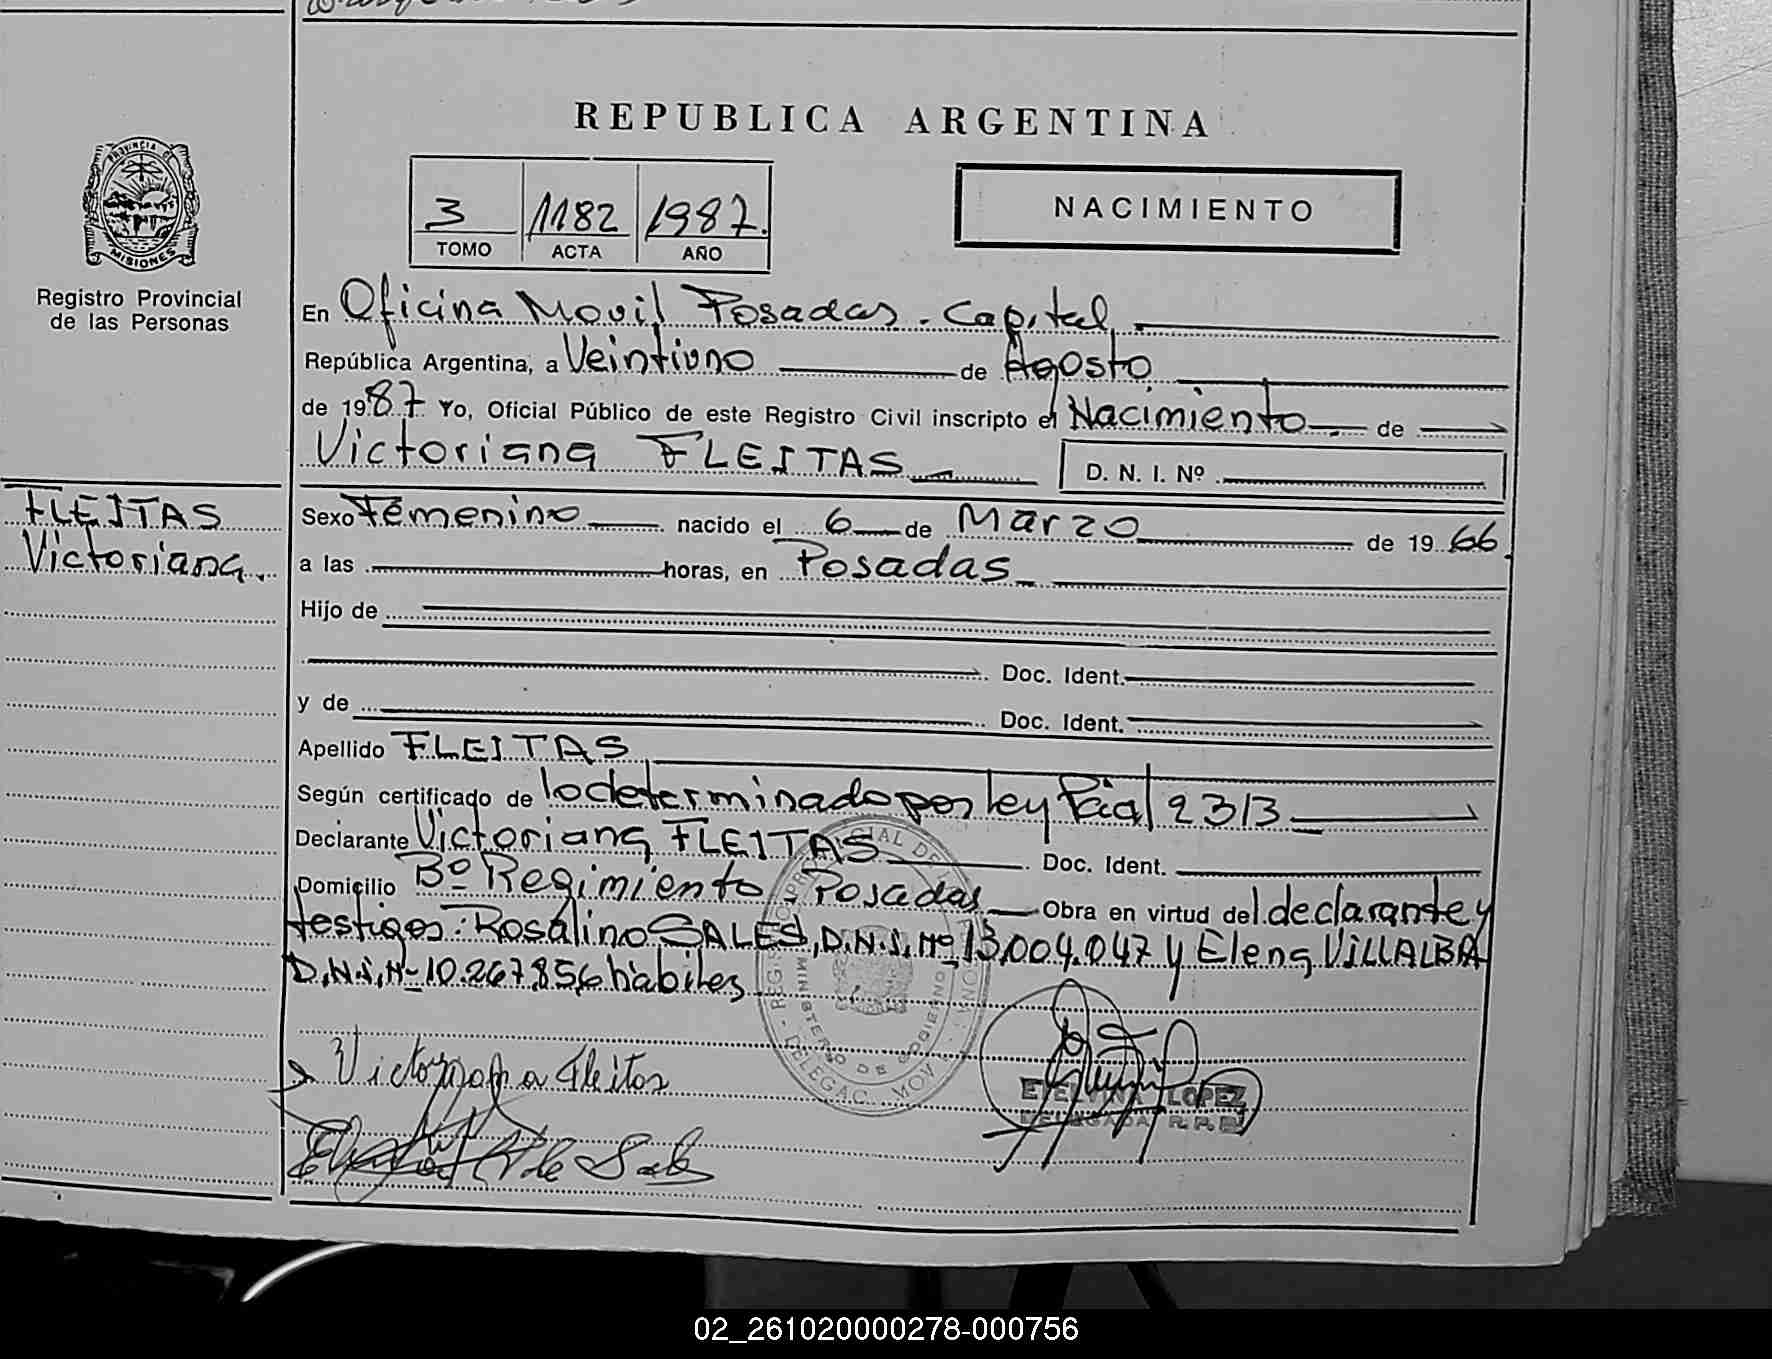 REPUBLICA ARGENTINA
PROVINCIA DE
MISIONES
Registro Provincial
de las Personas
3 1182 1987.
TOMO ACTA AÑO
NACIMIENTO
En Oficina Movil Posadas - Capital
República Argentina, a Veintiuno de Agosto
de 1987 Yo, Oficial Público de este Registro Civil inscripto el Nacimiento de
Victoriana FLEITAS D. N. I. Nº
FLEITAS
Victoriana.
Sexo Femenino nacido el 6 de Marzo de 1966
a las horas, en Posadas
Hijo de
Doc. Ident.
y de Doc. Ident.
Apellido FLEITAS
Según certificado de lo determinado por ley Pcial 2313
Declarante Victoriana FLEITAS Doc. Ident.
Domicilio Bº Regimiento - Posadas Obra en virtud del declarante y
testigos: Rosalino SALES, D.N.I. Nº 13.004.047 y Elena VILLALBA
D.N.I. Nº 10.267.856 hábiles
MINISTERIO DE GOBIERNO
Victoriana Fleitas
LOPEZ
DELEGADA R.P.P.
02_261020000278-000756